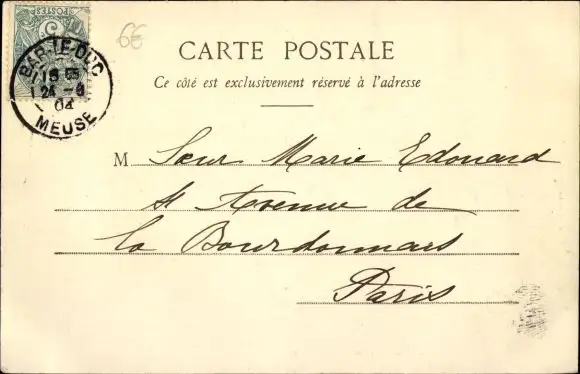 66
POSTES
5
BAR-LE-DUC
24
04
MEUSE
CARTE POSTALE
Ce côté est exclusivement réservé à l'adresse
M Sœur Marie Edouard
Avenue de
la Bourdonnais
Paris